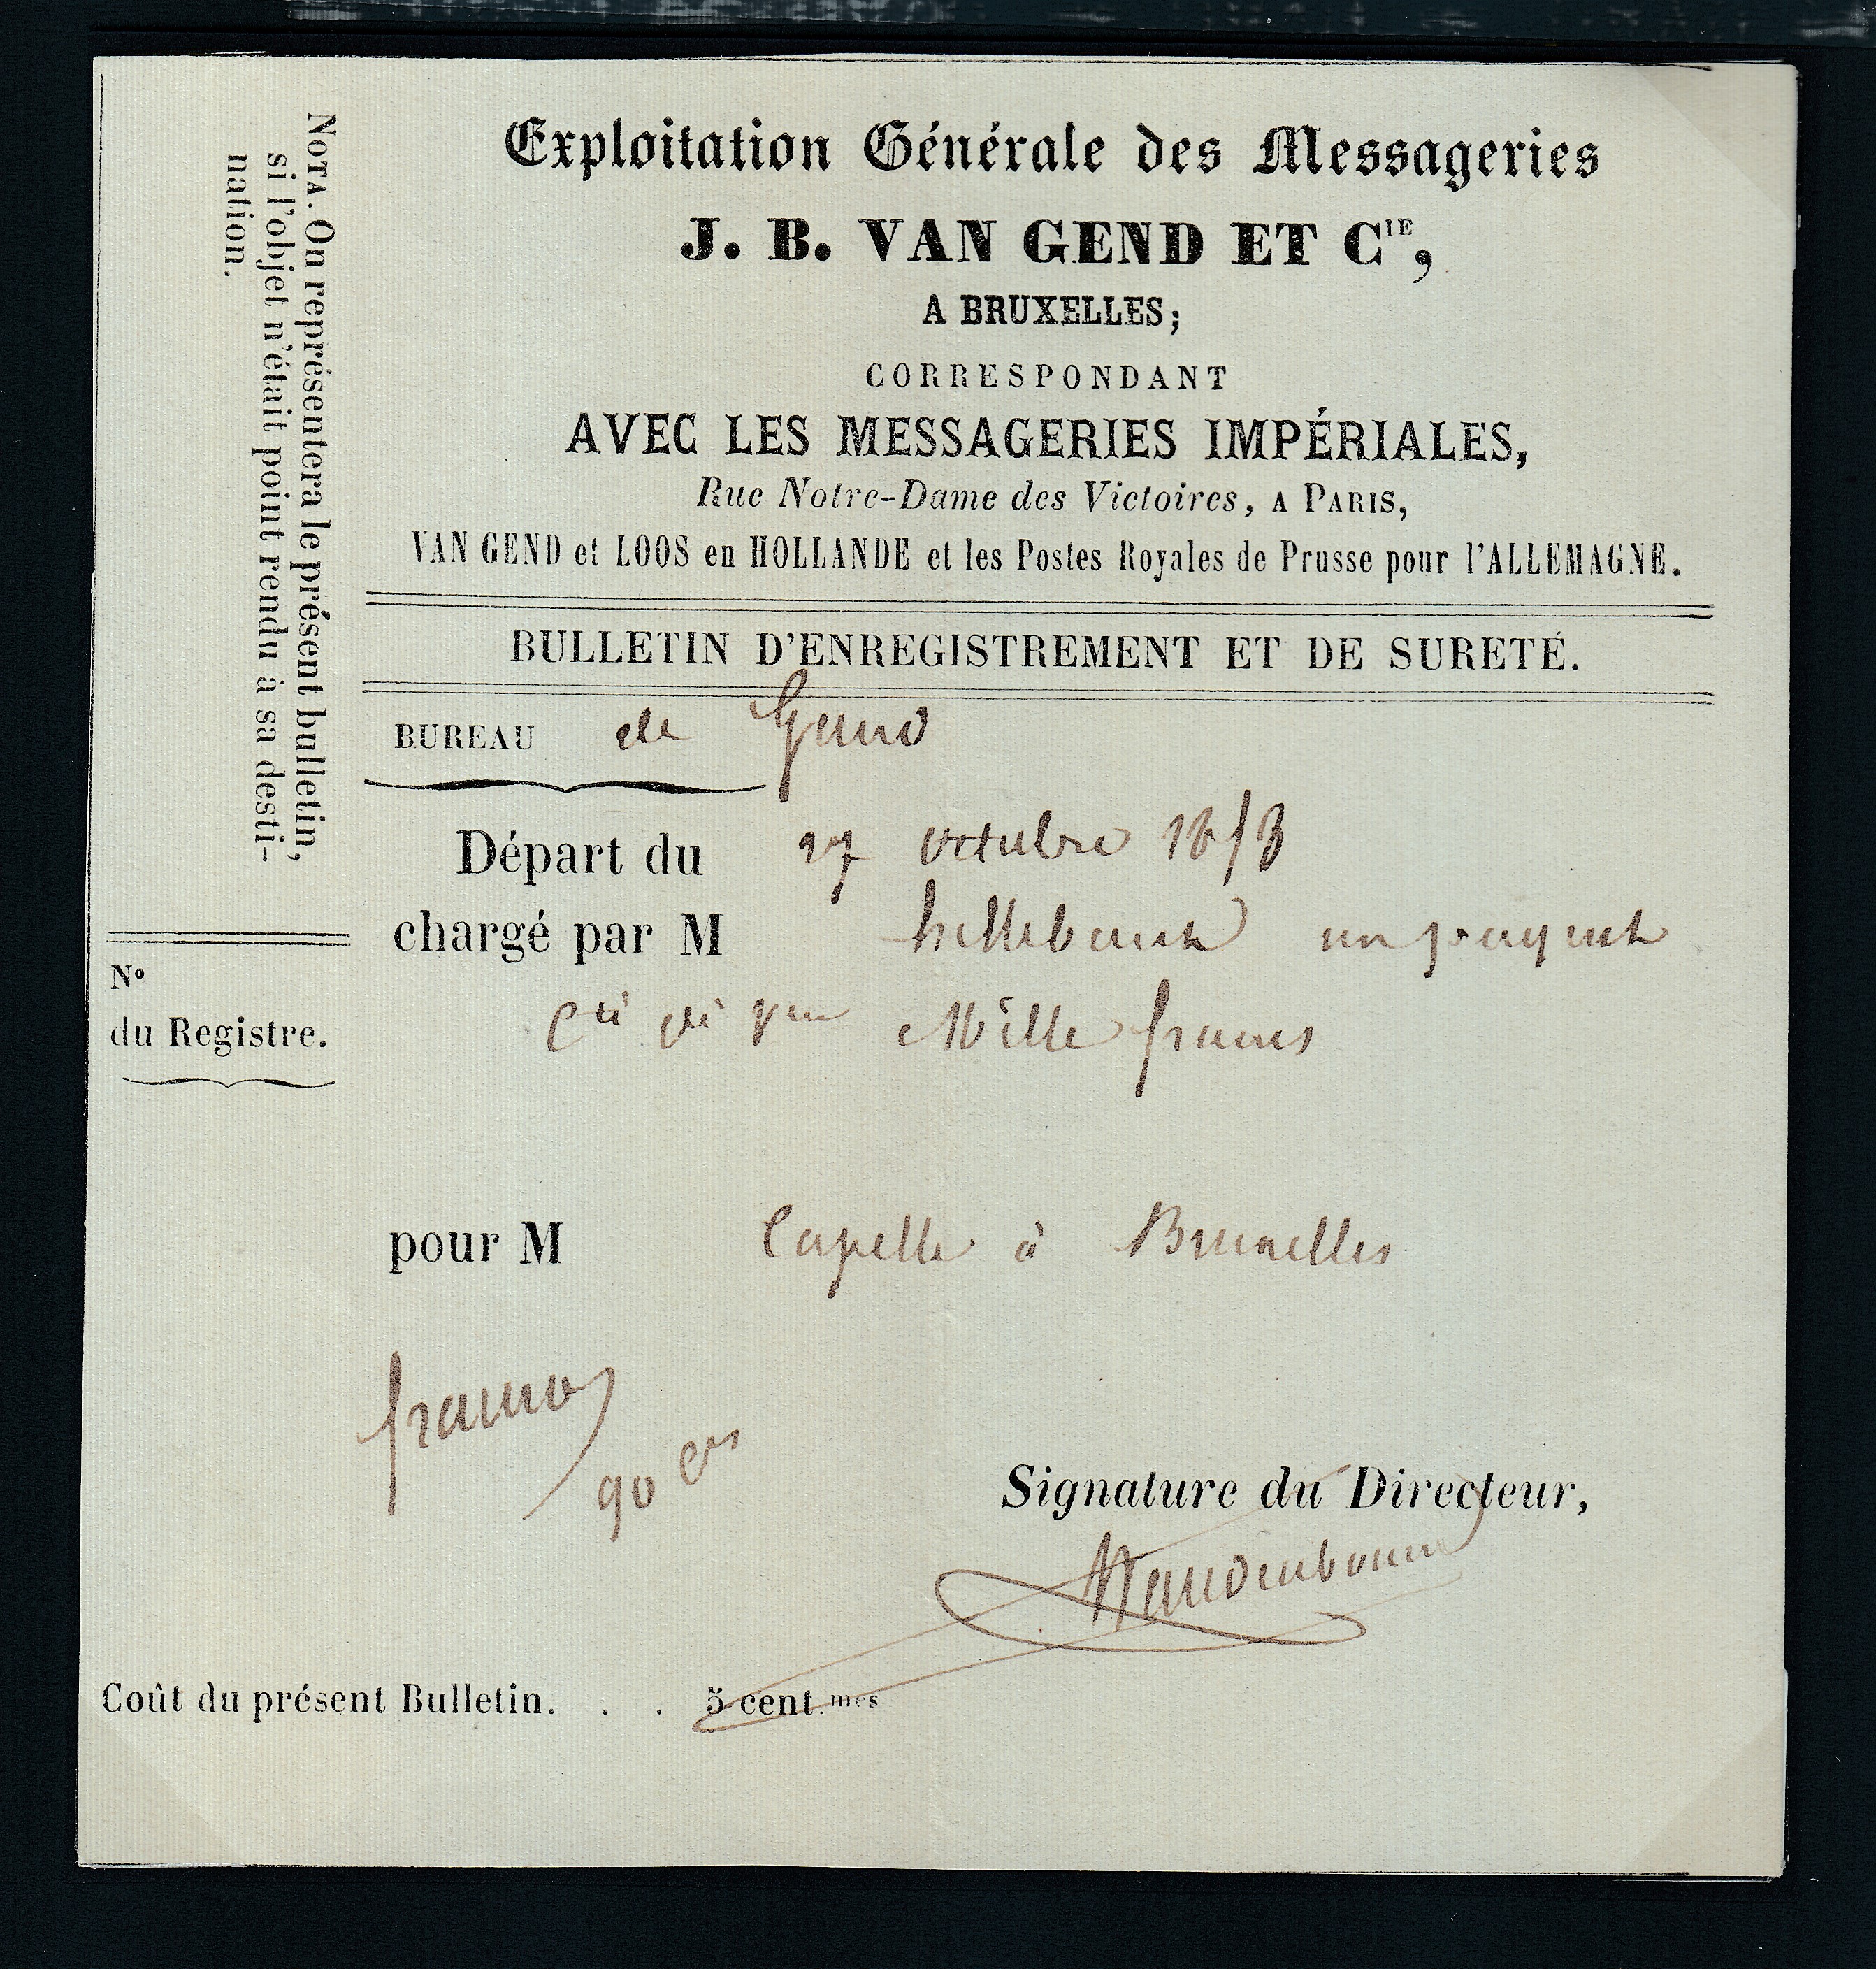 Exploitation Générale des Messageries
J. B. VAN GEND ET CIE,
A BRUXELLES;
CORRESPONDANT
AVEC LES MESSAGERIES IMPÉRIALES,
Rue Notre-Dame des Victoires, A PARIS,
VAN GEND et LOOS en HOLLANDE et les Postes Royales de Prusse pour l'ALLEMAGNE.
BULLETIN D'ENREGISTREMENT ET DE SURETÉ.
BUREAU de Gand
Départ du 27 octobre
chargé par M un paquet
Mille francs
pour M Capelle à Bruxelles
franco
90 cs
Signature du Directeur,
Coût du présent Bulletin. . . 5 cent.mes
NOTA. On représentera le présent bulletin,
si l'objet n'était point rendu à sa desti-
nation.
No
du Registre.